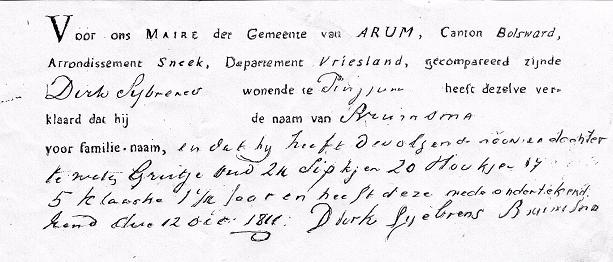 Voor ons MAIRE der Gemeente van ARUM, Canton Bolsward,
Arrondissement Sneek, Departement Vriesland, gecompareerd zijnde
Dirk Sybrens wonende te Pinjum heeft dezelve ver-
klaard dat hij de naam van Bruinsma
voor familie-naam, en dat hy heeft de volgende dochter
te wete Grietje oud 24 Sipkjen 20 Houkjen 17
5 Klaaske 1 1/2 Jaar en heeft deze mede ondertekend
den 12 Dec 1811. Dirk Sijebrens Bruinsma